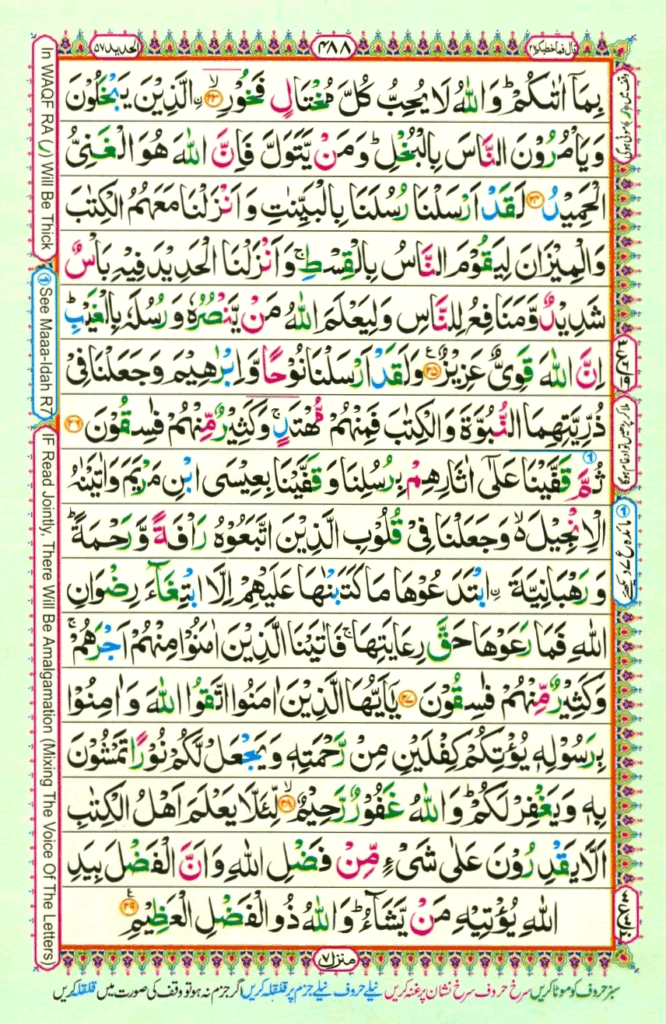 قال فما خطبكم ٢٧
٤٨٨
الحديد ٥٧
بِمَاۤ اٰتٰىكُمْؕ وَ اللّٰهُ لَا یُحِبُّ كُلَّ مُخْتَالٍ فَخُوْرِۙ ﴿۲۳﴾ ِ۟الَّذِیْنَ یَبْخَلُوْنَ
وَ یَاْمُرُوْنَ النَّاسَ بِالْبُخْلِؕ وَ مَنْ یَّتَوَلَّ فَاِنَّ اللّٰهَ هُوَ الْغَنِیُّ
الْحَمِیْدُ ﴿۲۴﴾ لَقَدْ اَرْسَلْنَا رُسُلَنَا بِالْبَیِّنٰتِ وَ اَنْزَلْنَا مَعَهُمُ الْكِتٰبَ
وَالْمِیْزَانَ لِیَقُوْمَ النَّاسُ بِالْقِسْطِۚ وَ اَنْزَلْنَا الْحَدِیْدَ فِیْهِ بَاْسٌ
شَدِیْدٌ وَّ مَنَافِعُ لِلنَّاسِ وَ لِیَعْلَمَ اللّٰهُ مَنْ یَّنْصُرُهٗ وَ رُسُلَهٗ بِالْغَیْبِؕ
اِنَّ اللّٰهَ قَوِیٌّ عَزِیْزٌ ﴿۲۵﴾ وَ لَقَدْ اَرْسَلْنَا نُوْحًا وَّ اِبْرٰهِیْمَ وَ جَعَلْنَا فِیْ
ذُرِّیَّتِهِمَا النُّبُوَّةَ وَ الْكِتٰبَ فَمِنْهُمْ مُّهْتَدٍۚ وَ كَثِیْرٌ مِّنْهُمْ فٰسِقُوْنَ ﴿۲۶﴾
ثُمَّ قَفَّیْنَا عَلٰۤی اٰثَارِهِمْ بِرُسُلِنَا وَ قَفَّیْنَا بِعِیْسَی ابْنِ مَرْیَمَ وَ اٰتَیْنٰهُ
الْاِنْجِیْلَ ۙ۬ وَ جَعَلْنَا فِیْ قُلُوْبِ الَّذِیْنَ اتَّبَعُوْهُ رَاْفَةً وَّ رَحْمَةًؕ
وَ رَهْبَانِیَّةَ ِ۟ابْتَدَعُوْهَا مَا كَتَبْنٰهَا عَلَیْهِمْ اِلَّا ابْتِغَآءَ رِضْوَانِ
اللّٰهِ فَمَا رَعَوْهَا حَقَّ رِعَایَتِهَاۚ فَاٰتَیْنَا الَّذِیْنَ اٰمَنُوْا مِنْهُمْ اَجْرَهُمْۚ
وَ كَثِیْرٌ مِّنْهُمْ فٰسِقُوْنَ ﴿۲۷﴾ یٰۤاَیُّهَا الَّذِیْنَ اٰمَنُوا اتَّقُوا اللّٰهَ وَ اٰمِنُوْا
بِرَسُوْلِهٖ یُؤْتِكُمْ كِفْلَیْنِ مِنْ رَّحْمَتِهٖ وَ یَجْعَلْ لَّكُمْ نُوْرًا تَمْشُوْنَ
بِهٖ وَ یَغْفِرْ لَكُمْؕ وَ اللّٰهُ غَفُوْرٌ رَّحِیْمٌۙ ﴿۲۸﴾ لِّئَلَّا یَعْلَمَ اَهْلُ الْكِتٰبِ
اَلَّا یَقْدِرُوْنَ عَلٰی شَیْءٍ مِّنْ فَضْلِ اللّٰهِ وَ اَنَّ الْفَضْلَ بِیَدِ
اللّٰهِ یُؤْتِیْهِ مَنْ یَّشَآءُؕ وَ اللّٰهُ ذُو الْفَضْلِ الْعَظِیْمِ ﴿۲۹﴾
منزل ٧
سبز حروف کو موٹا کریں سرخ حروف سرخ نشان پر غنہ کریں نیلے حروف نیلے جزم پر قلقلہ کریں اگر جزم نہ ہو تو وقف کی صورت میں قلقلہ کریں
In WAQF RA (ر) Will Be Thick
① See Maaa-Idah R7
IF Read Jointly, There Will Be Amalgamation (Mixing The Voice Of The Letters)